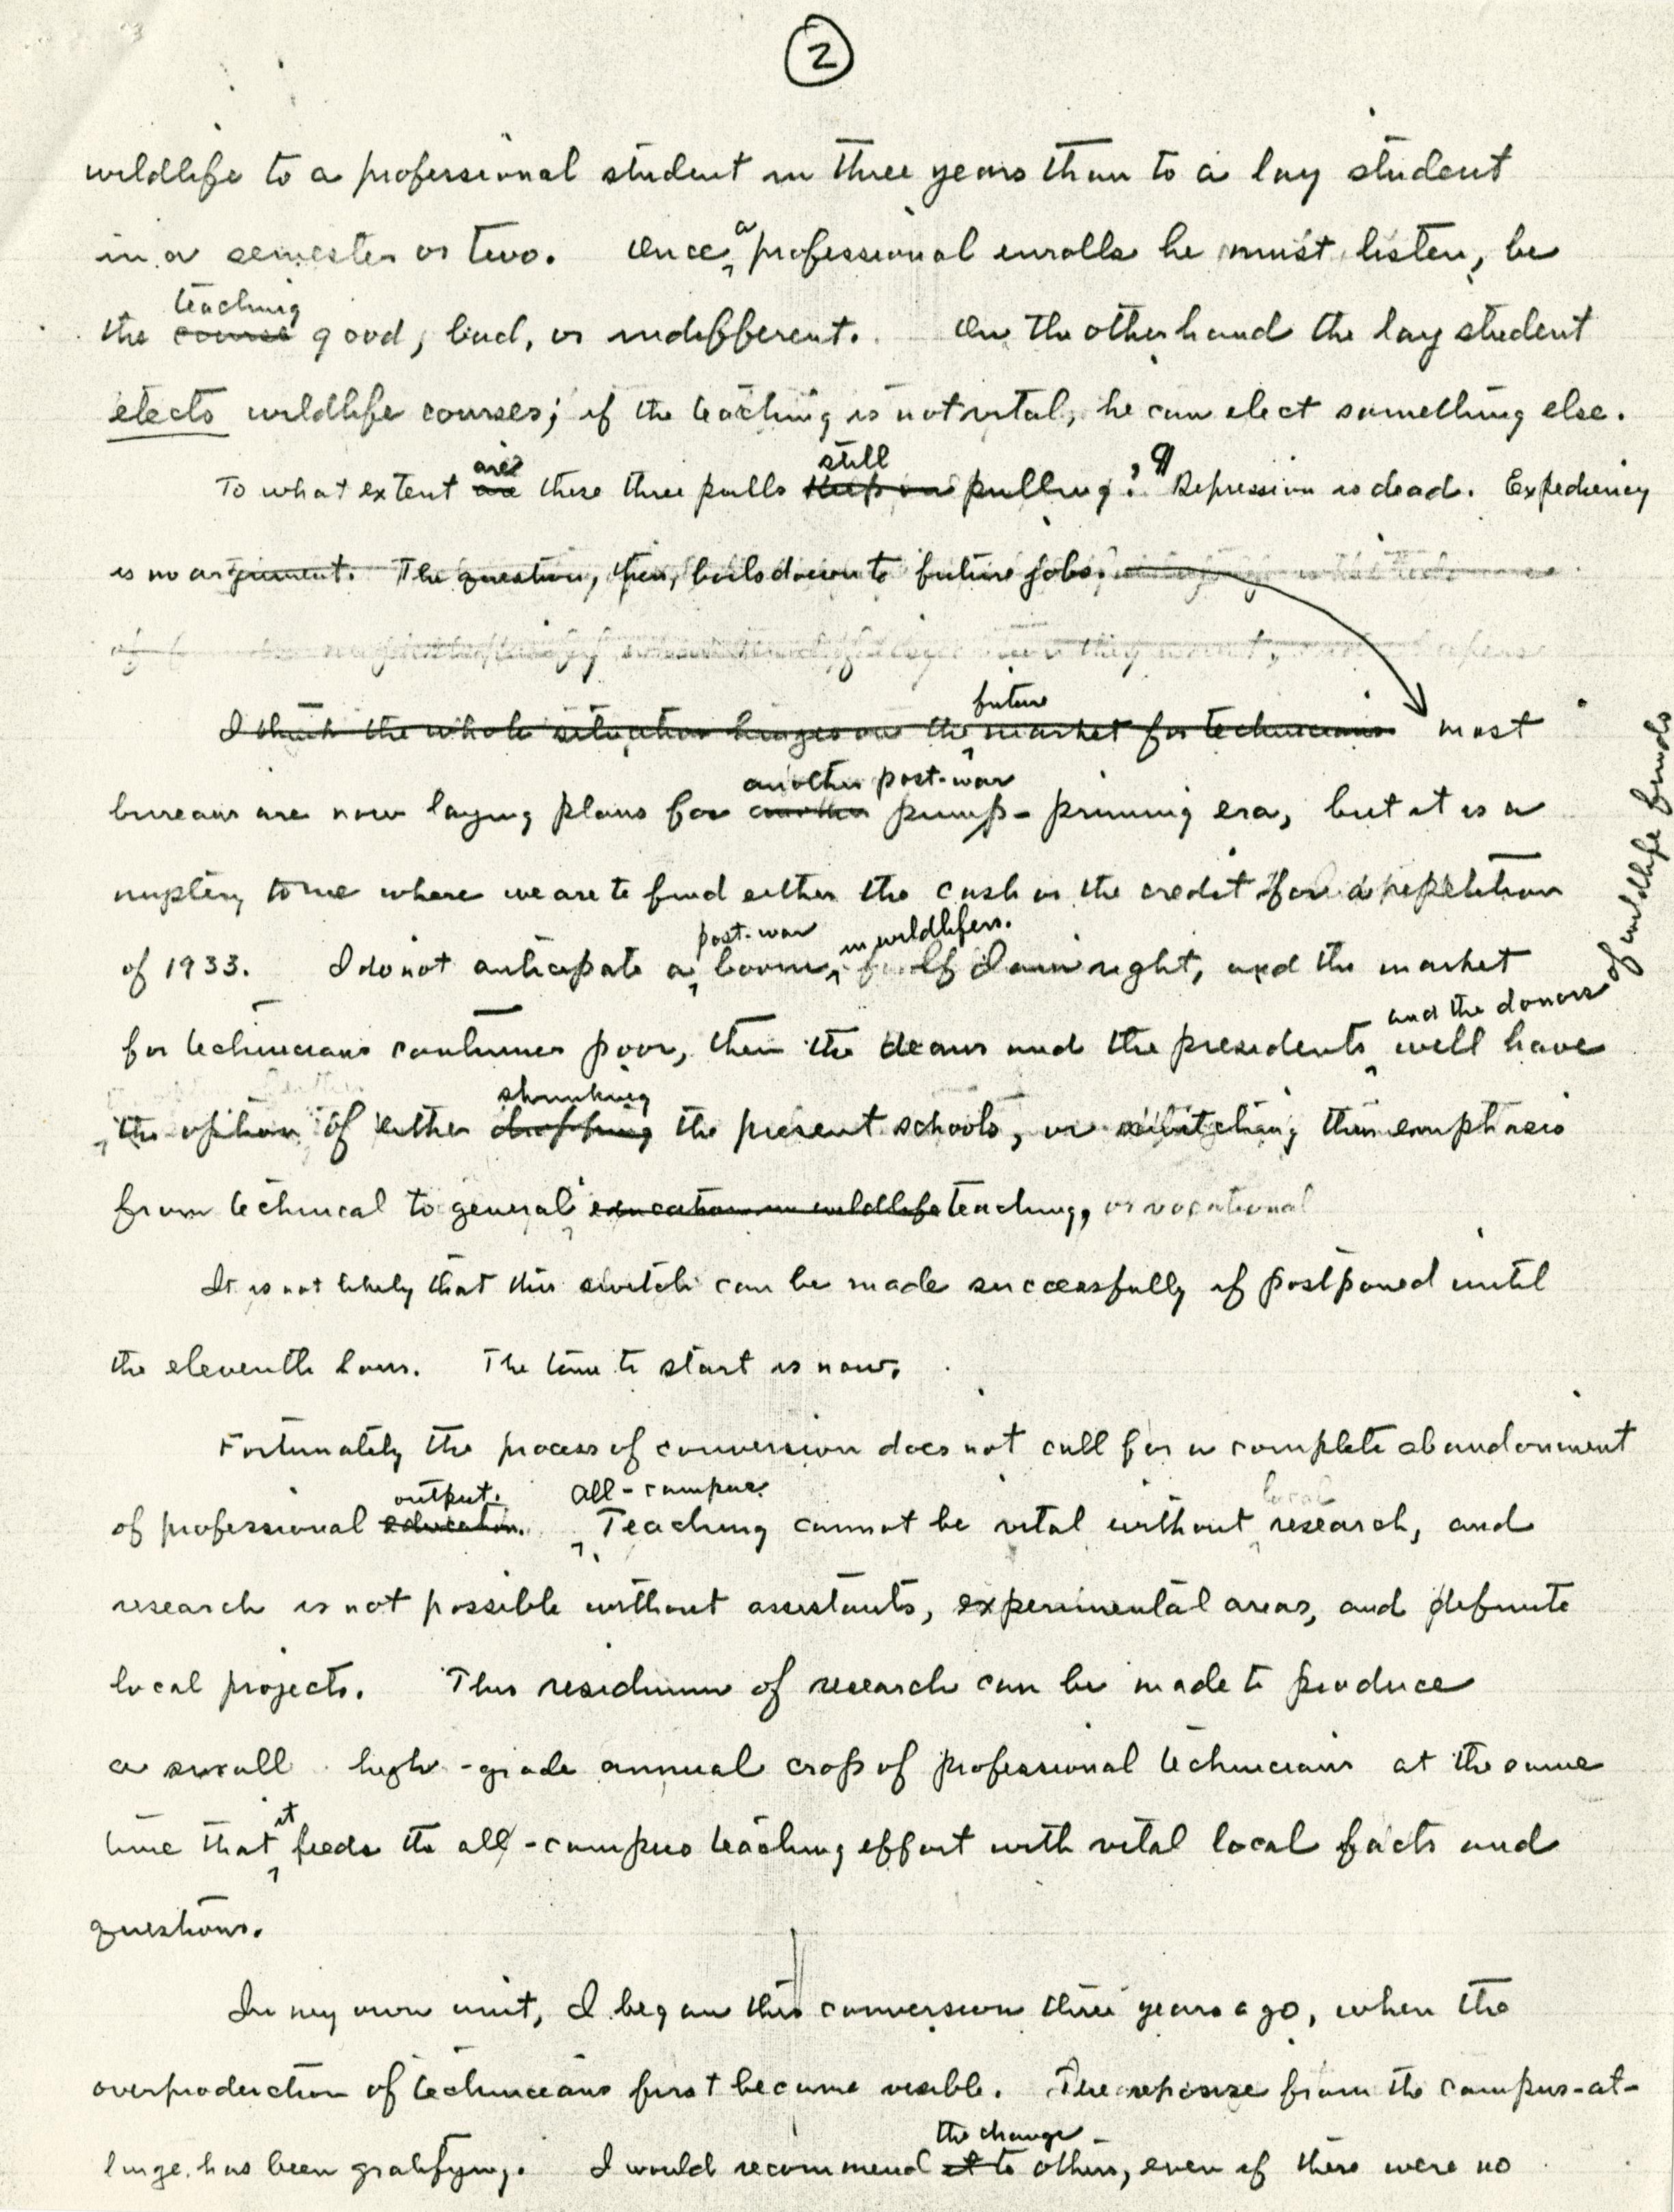 2
wildlife to a professional student in three years than to a lay student
in a semester or two. Once a professional enrolls he must listen, be
teaching
the course good, bad, or indifferent. On the other hand the lay student
elects wildlife courses; if the teaching is not vital, he can elect something else.
are still
To what extent are these three pulls keep on pulling? ¶ Depression is dead. Expediency
is no argument. The question, then, boils down to future jobs.
future
I think the whole situation hinges on the market for technicians most
another post-war
bureaus are now laying plans for another pump-priming era, but it is a
mystery to me where we are to find either the cash or the credit for a repetition
post-war in wildlifers.
of 1933. I do not anticipate a boom, If I am right, and the market
and the donors of wildlife funds
for technicians continues poor, then the deans and the presidents will have
shrinking
the option of either dropping the present schools, or switching their emphasis
from technical to general education in wildlife teaching, or vocational
It is not likely that this switch can be made successfully if postponed until
the eleventh hour. The time to start is now.
Fortunately the process of conversion does not call for a complete abandonment
output. all-campus local
of professional education. Teaching cannot be vital without research, and
research is not possible without assistants, experimental areas, and definite
local projects. This residuum of research can be made to produce
a small high-grade annual crop of professional technicians at the same
it
time that feeds the all-campus teaching effort with vital local facts and
questions.
In my own unit, I began this conversion three years ago, when the
overproduction of technicians first became visible. The reponse from the campus-at-
the change
large has been gratifying. I would recommend it to others, even if there were no